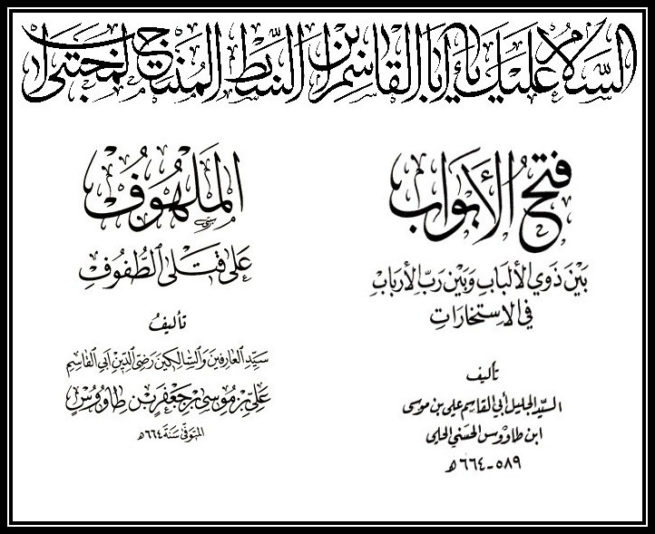 السلام عليك يا أبا القاسم بن السبط المنتجب المجتبى
فتح الأبواب
بين ذوي الألباب وبين رب الأرباب
في الاستخارات
تأليف
السيد الجليل أبي القاسم علي بن موسى
ابن طاووس الحسني الحلي
٥٨٩-٦٦٤ هـ
الملهوف
على قتلى الطفوف
تأليف
سيد العارفين والسالكين رضي الدين أبي القاسم
علي بن موسى بن جعفر بن طاووس
المتوفى سنة ٦٦٤ هـ